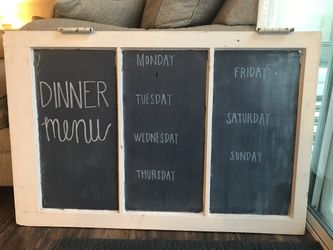 DINNER
menu
MONDAY
TUESDAY
WEDNESDAY
THURSDAY
FRIDAY
SATURDAY
SUNDAY